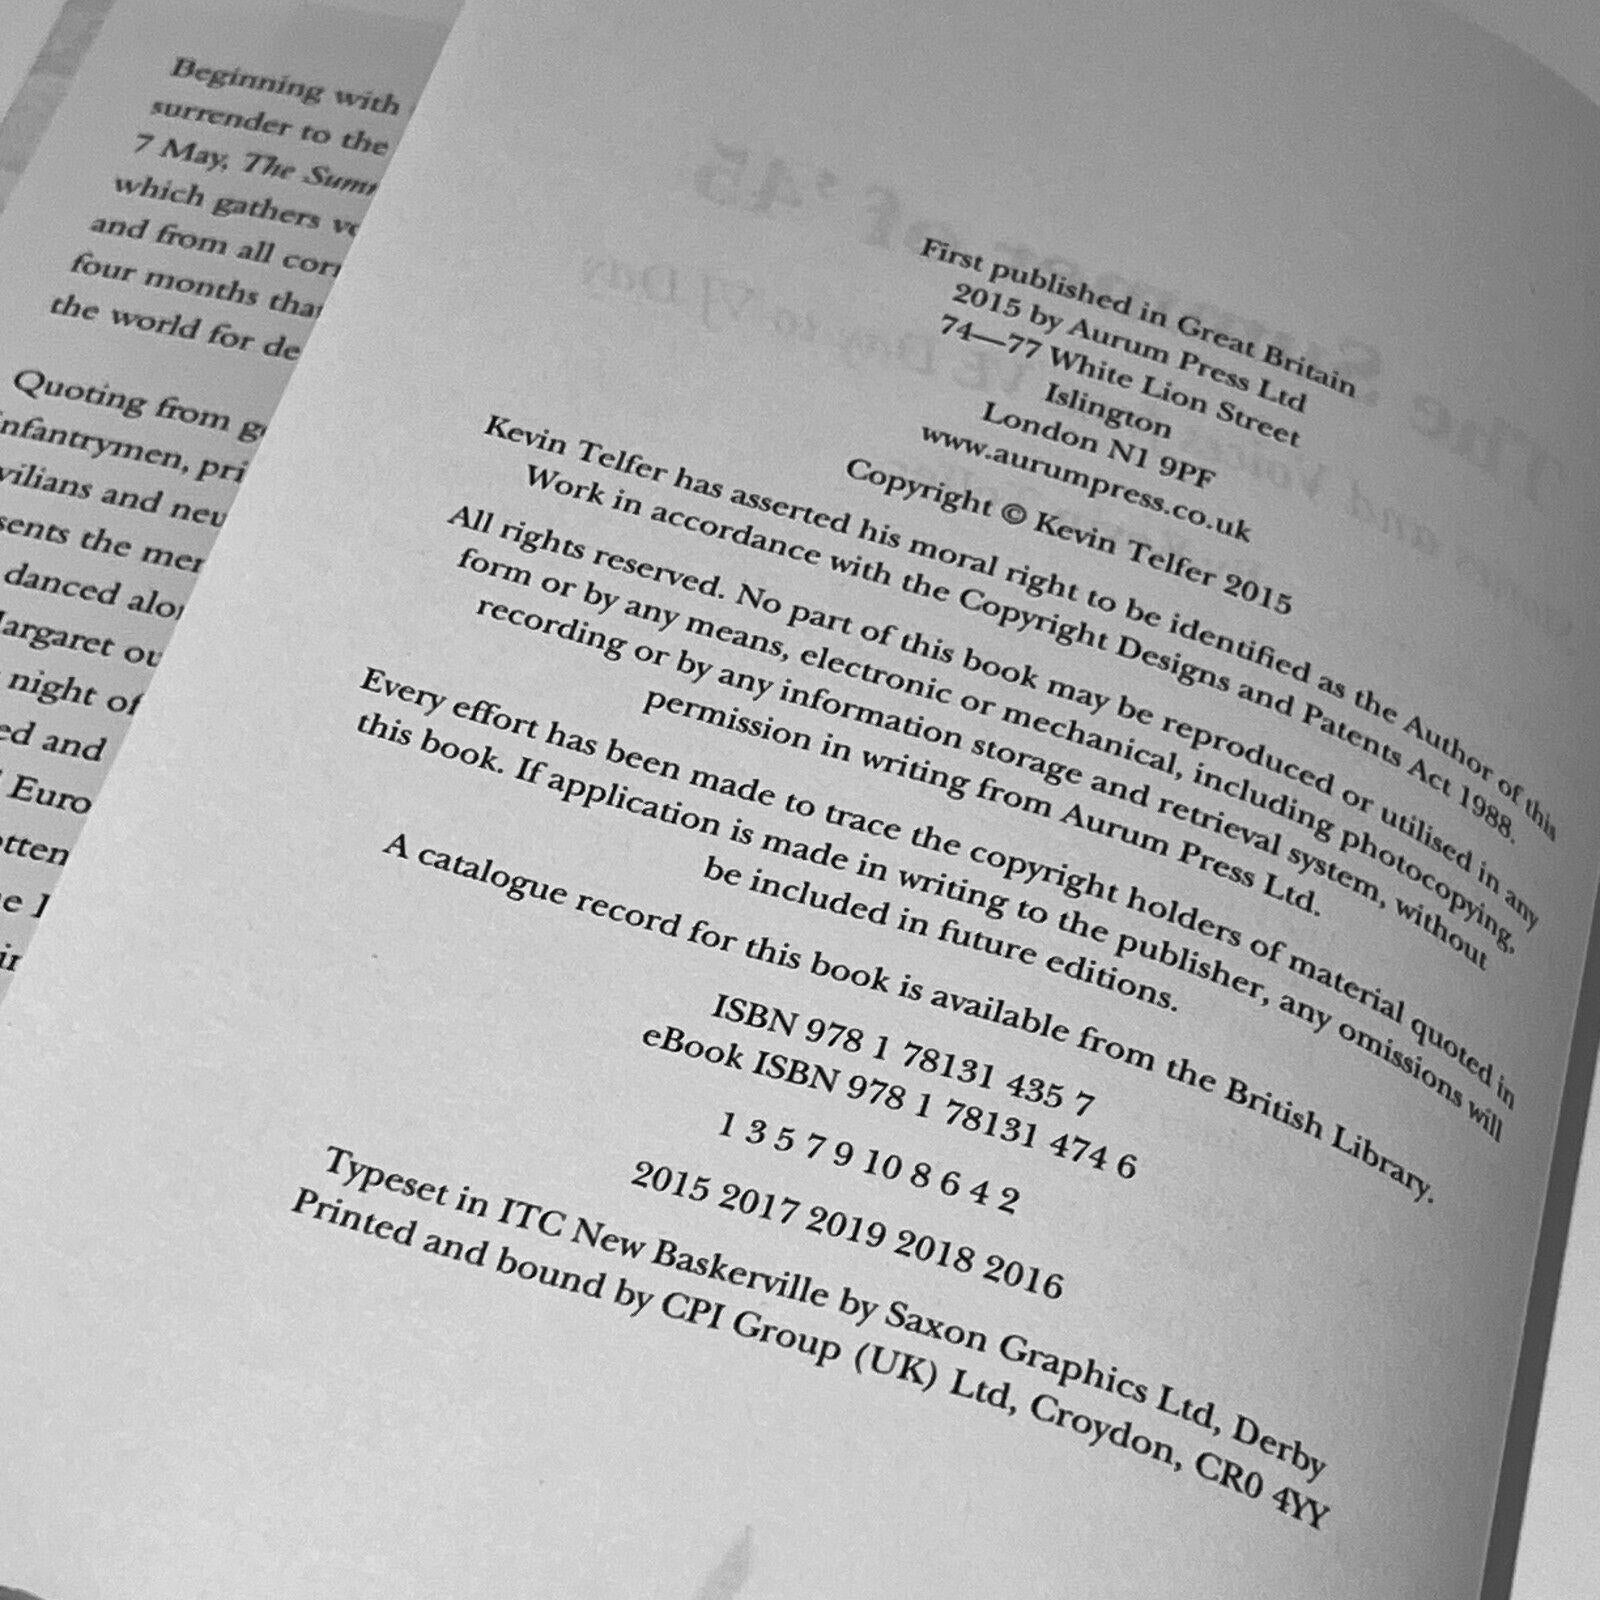 Beginning with
surrender to the
7 May, The Summ
which gathers vo
and from all corn
four months than
the world for de
Quoting from g
nfantrymen, pri
vilians and neu
sents the mer
danced alo
argaret ou
night of
ed and
Euro
otten
e I
in
The Summer of '45
VE Day to VJ Day
First published in Great Britain
2015 by Aurum Press Ltd
74—77 White Lion Street
Islington
London N1 9PF
www.aurumpress.co.uk
Copyright © Kevin Telfer 2015
Kevin Telfer has asserted his moral right to be identified as the Author of this
Work in accordance with the Copyright Designs and Patents Act 1988.
All rights reserved. No part of this book may be reproduced or utilised in any
form or by any means, electronic or mechanical, including photocopying,
recording or by any information storage and retrieval system, without
permission in writing from Aurum Press Ltd.
Every effort has been made to trace the copyright holders of material quoted in
this book. If application is made in writing to the publisher, any omissions will
be included in future editions.
A catalogue record for this book is available from the British Library.
ISBN 978 1 78131 435 7
eBook ISBN 978 1 78131 474 6
1 3 5 7 9 10 8 6 4 2
2015 2017 2019 2018 2016
Typeset in ITC New Baskerville by Saxon Graphics Ltd, Derby
Printed and bound by CPI Group (UK) Ltd, Croydon, CR0 4YY